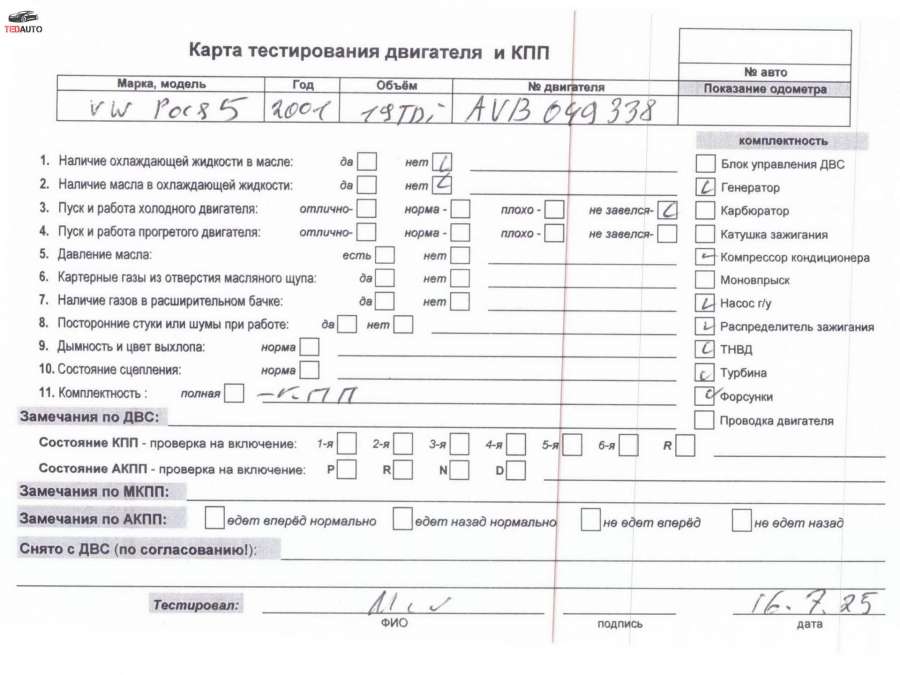 TEDAUTO
Карта тестирования двигателя и КПП
№ авто
Марка, модель Год Объём № двигателя Показание одометра
VW 5 2001 1,9TDi AVB 049338
комплектность
1. Наличие охлаждающей жидкости в масле: да нет
Блок управления ДВС
2. Наличие масла в охлаждающей жидкости: да нет
Генератор
3. Пуск и работа холодного двигателя: отлично- норма - плохо - не завелся-
Карбюратор
4. Пуск и работа прогретого двигателя: отлично- норма - плохо - не завелся-
Катушка зажигания
5. Давление масла: есть нет
Компрессор кондиционера
6. Картерные газы из отверстия масляного щупа: да нет
Моновпрыск
7. Наличие газов в расширительном бачке: да нет
Насос г/у
8. Посторонние стуки или шумы при работе: да нет
Распределитель зажигания
9. Дымность и цвет выхлопа: норма
ТНВД
10. Состояние сцепления: норма
Турбина
11. Комплектность : полная -КПП
Форсунки
Замечания по ДВС:
Проводка двигателя
Состояние КПП - проверка на включение: 1-я 2-я 3-я 4-я 5-я 6-я R
Состояние АКПП - проверка на включение: P R N D
Замечания по МКПП:
Замечания по АКПП: едет вперёд нормально едет назад нормально не едет вперёд не едет назад
Снято с ДВС (по согласованию!):
Тестировал: 16.7.25
ФИО подпись дата